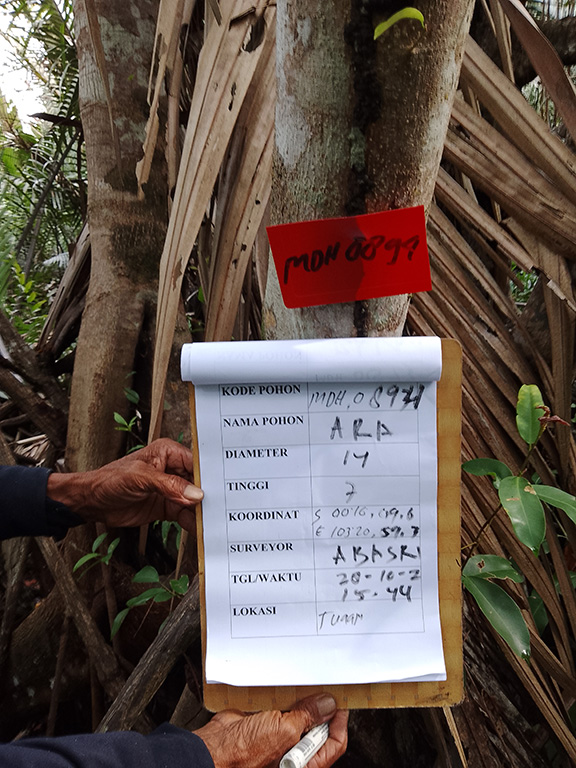 MDH 0899
KODE POHON MDH.0899
NAMA POHON ARA
DIAMETER 14
TINGGI 7
KOORDINAT S 00'16,
E 103'20, 59.3
SURVEYOR ABASRI
TGL/WAKTU 20-10-2
15-44
LOKASI